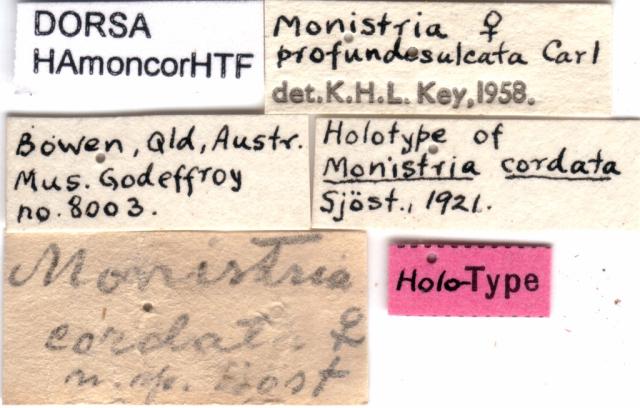 DORSA
HAmoncorHTF
Monistria ♀
profundesulcata Carl
det. K.H.L. Key, 1958.
Bowen, Qld, Austr.
Mus. Godeffroy
no. 8003.
Holotype of
Monistria cordata
Sjöst., 1921.
Monistria
cordata ♀
n. sp.
Holo-Type